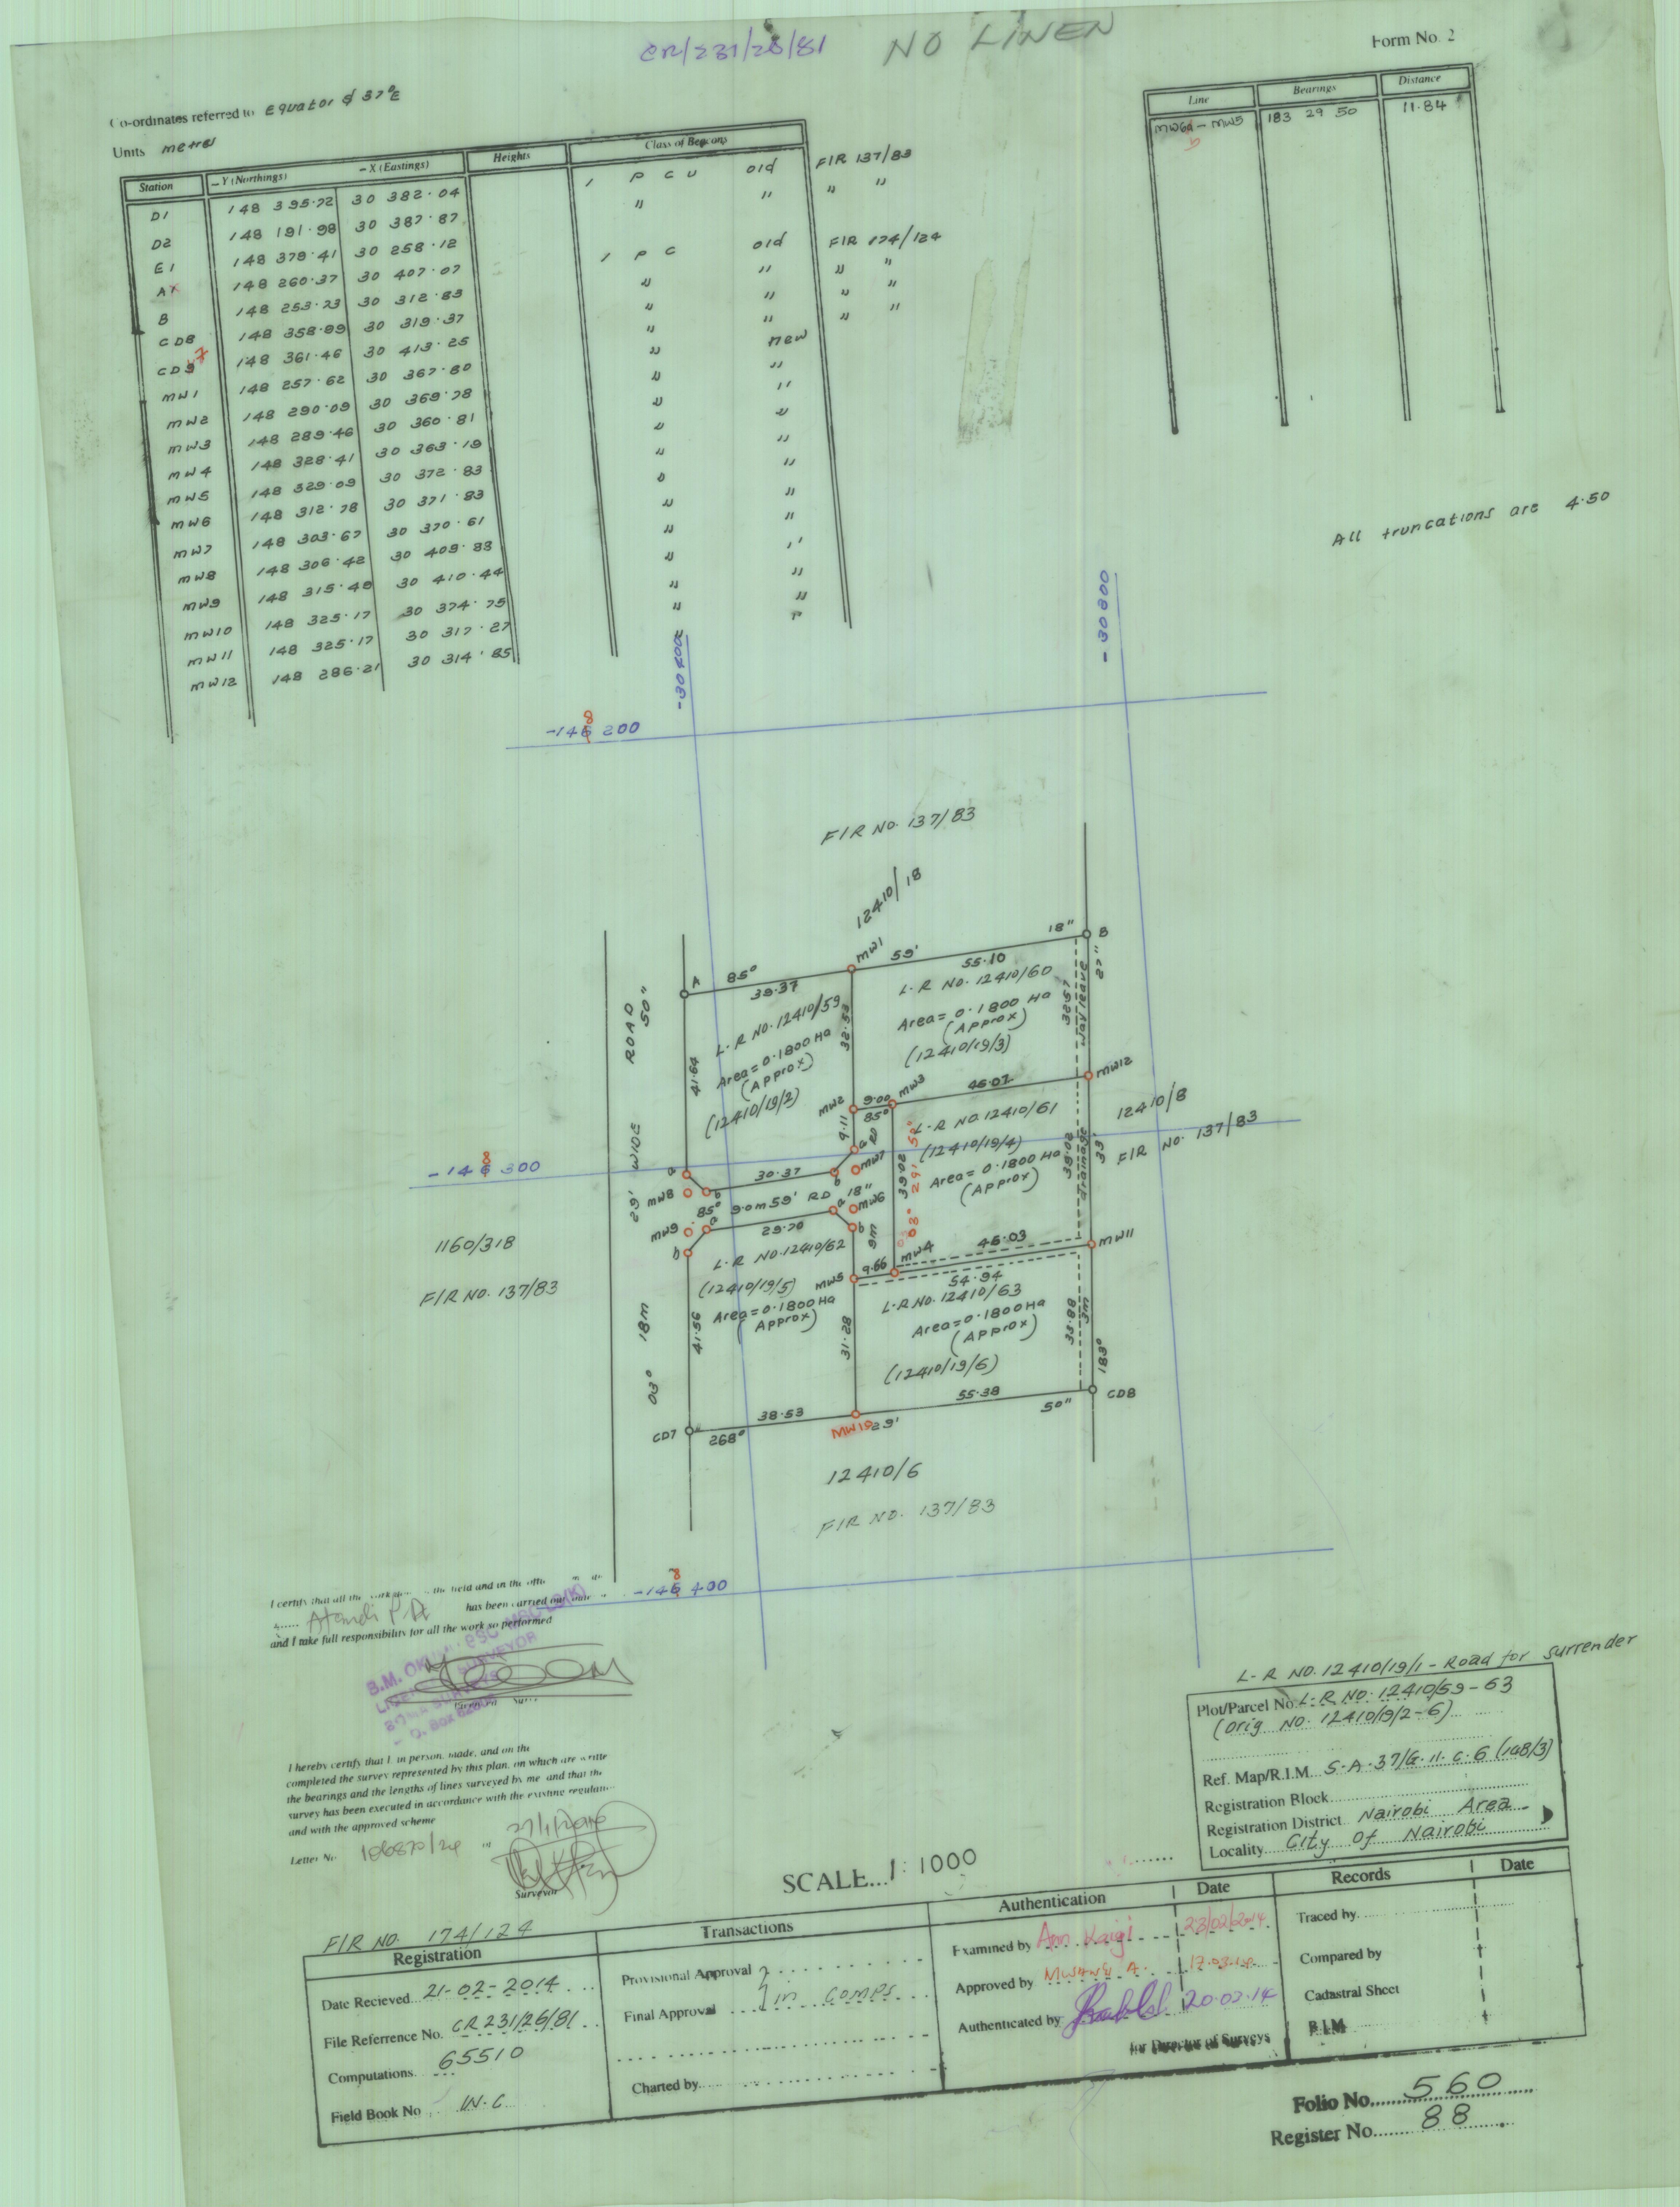 CR/231/26/81 NO LINEN
Form No. 2
Co-ordinates referred to Equator & 37°E
Units metres
Station -Y (Northings) -X (Eastings) Heights Class of Beacons
D1 148 395.72 30 382.04 I P C U old FIR 137/83
D2 148 191.98 30 387.87 " " " "
E1 148 379.41 30 258.12
A 148 260.37 30 407.07 I P C old FIR 174/124
B 148 253.23 30 312.83 " " " "
CD8 148 358.89 30 319.37 " " " "
CD7 148 361.46 30 413.25 " " " "
MW1 148 257.62 30 367.80 " new
MW2 148 290.09 30 369.78 " "
MW3 148 289.46 30 360.81 " "
MW4 148 328.41 30 363.19 " "
MW5 148 329.09 30 372.83 " "
MW6 148 312.78 30 371.83 " "
MW7 148 303.67 30 370.61 " "
MW8 148 306.42 30 409.88 " "
MW9 148 315.48 30 410.44 " "
MW10 148 325.17 30 374.75 " "
MW11 148 325.17 30 317.27 " "
MW12 148 286.21 30 314.85
Line Bearings Distance
MW6b - MW5 183 29 50 11.84
All truncations are 4.50
-30400
-30300
-148 200
F/R NO. 137/83
12410/18
A 85° MW1 59' 18" B
39.37 55.10
L.R NO. 12410/59
Area = 0.1800 Ha
(Approx)
(12410/19/2)
L.R NO. 12410/60
Area = 0.1800 Ha
(Approx)
(12410/19/3)
ROAD 50"
WIDE
29'
18M
03°
41.64
32.53
wayleave
27"
MW2 9.00 MW3 46.07 MW12
85°
9.11
L.R NO. 12410/61
(12410/19/4)
Area = 0.1800 Ha
(Approx)
39.02
drainage
33'
12410/8
F/R NO. 137/83
-148 300
a 30.37 a MW7
MW8 b b
85° 9.0m 59' RD 18" MW6
MW9 a 29.70 a b
b
L.R NO. 12410/62
(12410/19/5)
Area = 0.1800 Ha
(Approx)
1160/318
F/R NO. 137/83
9m
MW5 9.66 MW4 46.03 MW11
54.94
L.R NO. 12410/63
Area = 0.1800 Ha
(Approx)
(12410/19/6)
41.56
31.28
33.88
3m
183°
CD7 268° 38.53 MW10 29' 55.38 50" CD8
12410/6
F/R NO. 137/83
-148 400
I certify that all the work in the field and in the
has been carried out
and I take full responsibility for all the work so performed
B.M. OK
SURVEYOR
I hereby certify that I in person, made, and on the
completed the survey represented by this plan, on which are writte
the bearings and the lengths of lines surveyed by me and that the
survey has been executed in accordance with the existing regulati
and with the approved scheme
Letter No.
Surveyor
L.R NO. 12410/19/1 - Road for surrender
Plot/Parcel No. L.R NO. 12410/59-63
(Orig NO. 12410/19/2-6)
Ref. Map/R.I.M. S.A.37/G.11.C.6 (148/3)
Registration Block
Registration District Nairobi Area
Locality City of Nairobi
SCALE... 1:1000
F/R NO. 174/124
Registration
Date Recieved 21-02-2014
File Referrence No. CR 231/26/81
Computations 65510
Field Book No W.C
Transactions
Provisional Approval
Final Approval } in comps
Charted by
Authentication Date
Examined by Ann Kaigi 23/02/2014
Approved by Mwangi A. 17.03.14
Authenticated by 20.03.14
for Director of Surveys
Records Date
Traced by
Compared by
Cadastral Sheet
R.I.M.
Folio No. 560
Register No. 88